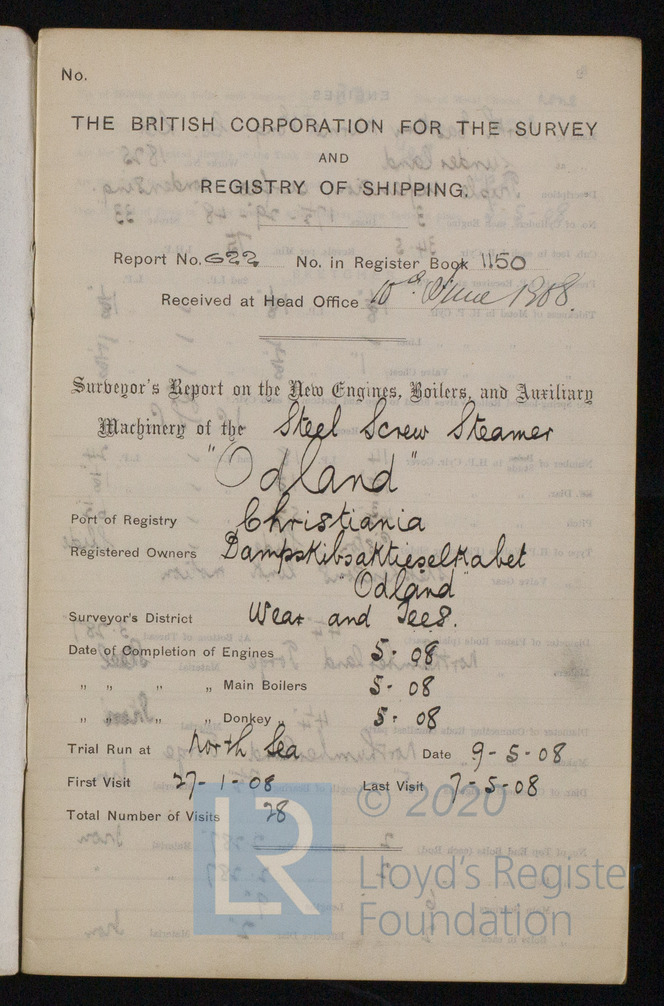 No.
THE BRITISH CORPORATION FOR THE SURVEY
AND
REGISTRY OF SHIPPING.
Report No. 622 No. in Register Book 1150
Received at Head Office 10th June 1908.
Surveyor's Report on the New Engines, Boilers, and Auxiliary
Machinery of the Steel Screw Steamer
"Odland"
Port of Registry Christiania
Registered Owners Dampskibsaktieselkabet
"Odland"
Surveyor's District Wear and Tees.
Date of Completion of Engines 5-08
" " " " Main Boilers 5-08
" " " " Donkey " 5-08
Trial Run at North Sea Date 9-5-08
First Visit 27-1-08 Last Visit 7-5-08
Total Number of Visits 28
© 2020
LR
Lloyd's Register
Foundation